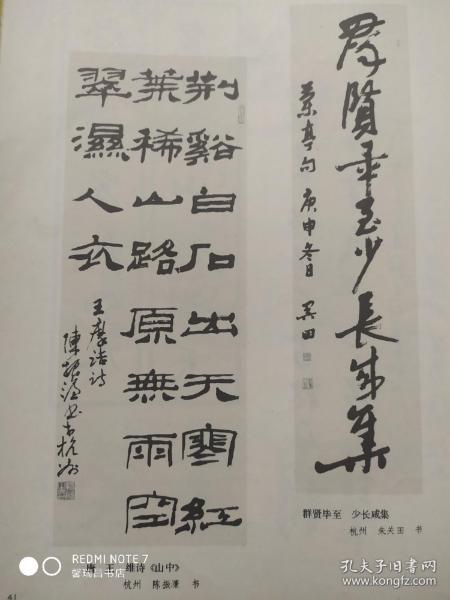 羣賢畢至少長咸集
蘭亭句 庚申冬日 关田
荆谿白石出天寒紅
葉稀山路原無雨空
翠濕人衣
王摩詰詩
陳振濂书于杭州
群贤毕至 少长咸集
杭州 朱关田 书
唐 王 维诗《山中》
杭州 陈振濂 书
41
REDMI NOTE 7
孔夫子旧书网